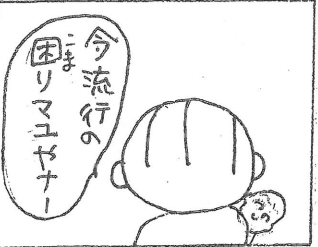 今流行の
困りマユやナー
こま